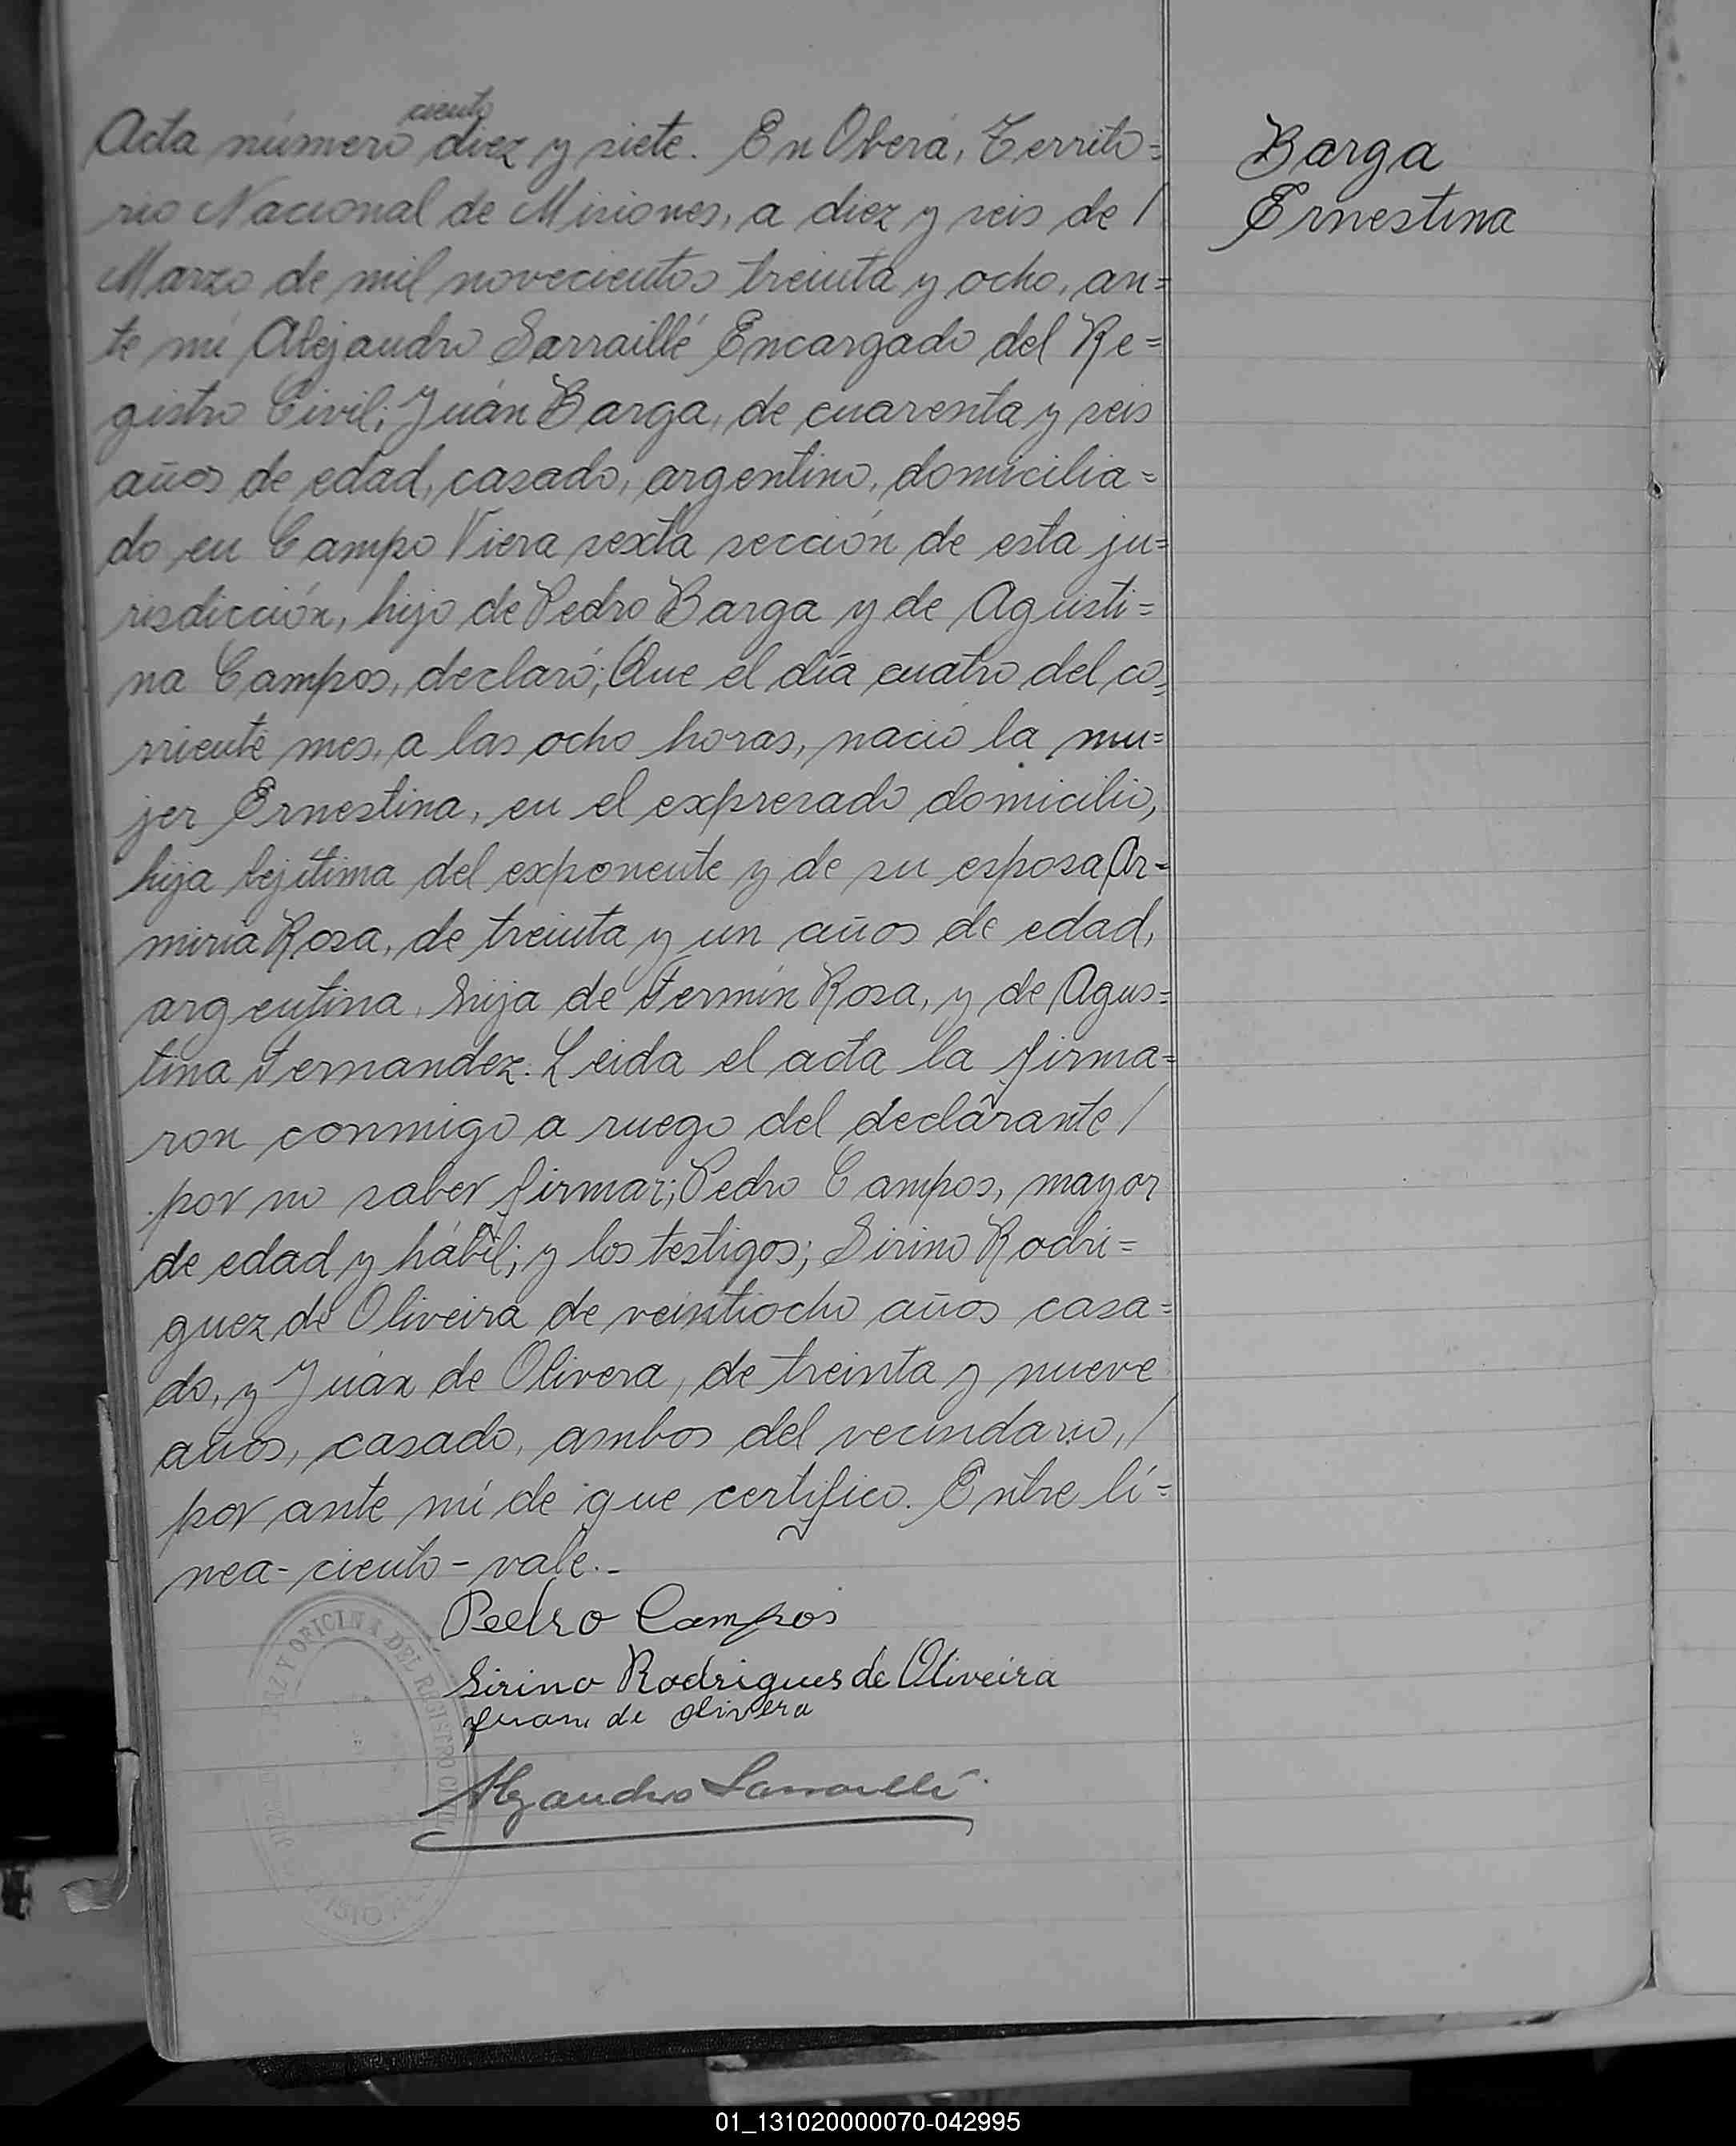 ciento
Acta número diez y siete. En Oberá, Territo=
rio Nacional de Misiones, a diez y seis de /
Marzo de mil novecientos treinta y ocho, an=
te mí Alejandro Sarraillé Encargado del Re=
gistro Civil; Juán Barga, de cuarenta y seis
años de edad, casado, argentino, domicilia=
do en Campo Viera sexta sección de esta ju=
risdicción, hijo de Pedro Barga y de Agusti=
na Campos, declaró; Que el día cuatro del co=
rriente mes, a las ocho horas, nació la mu=
jer Ernestina, en el expresado domicilio,
hija lejítima del exponente y de su esposa Ar=
miria Rosa, de treinta y un años de edad,
argentina, hija de Fermín Rosa, y de Agus=
tina Fernandez. Leida el acta la firma=
ron conmigo a ruego del declarante /
por no saber firmar; Pedro Campos, mayor
de edad y hábil; y los testigos; Sirino Rodri=
guez de Oliveira de veintiocho años casa=
do, y Juán de Olivera, de treinta y nueve
años, casado, ambos del vecindario, /
por ante mí de que certifico. Entre lí=
nea-ciento-vale.-
Pedro Campos
Sirino Rodrigues de Oliveira
Juan de Olivera
Alejandro Sarraillé
PAZ Y OFICINA DEL REGISTRO CIVIL
Barga
Ernestina
01_131020000070-042995